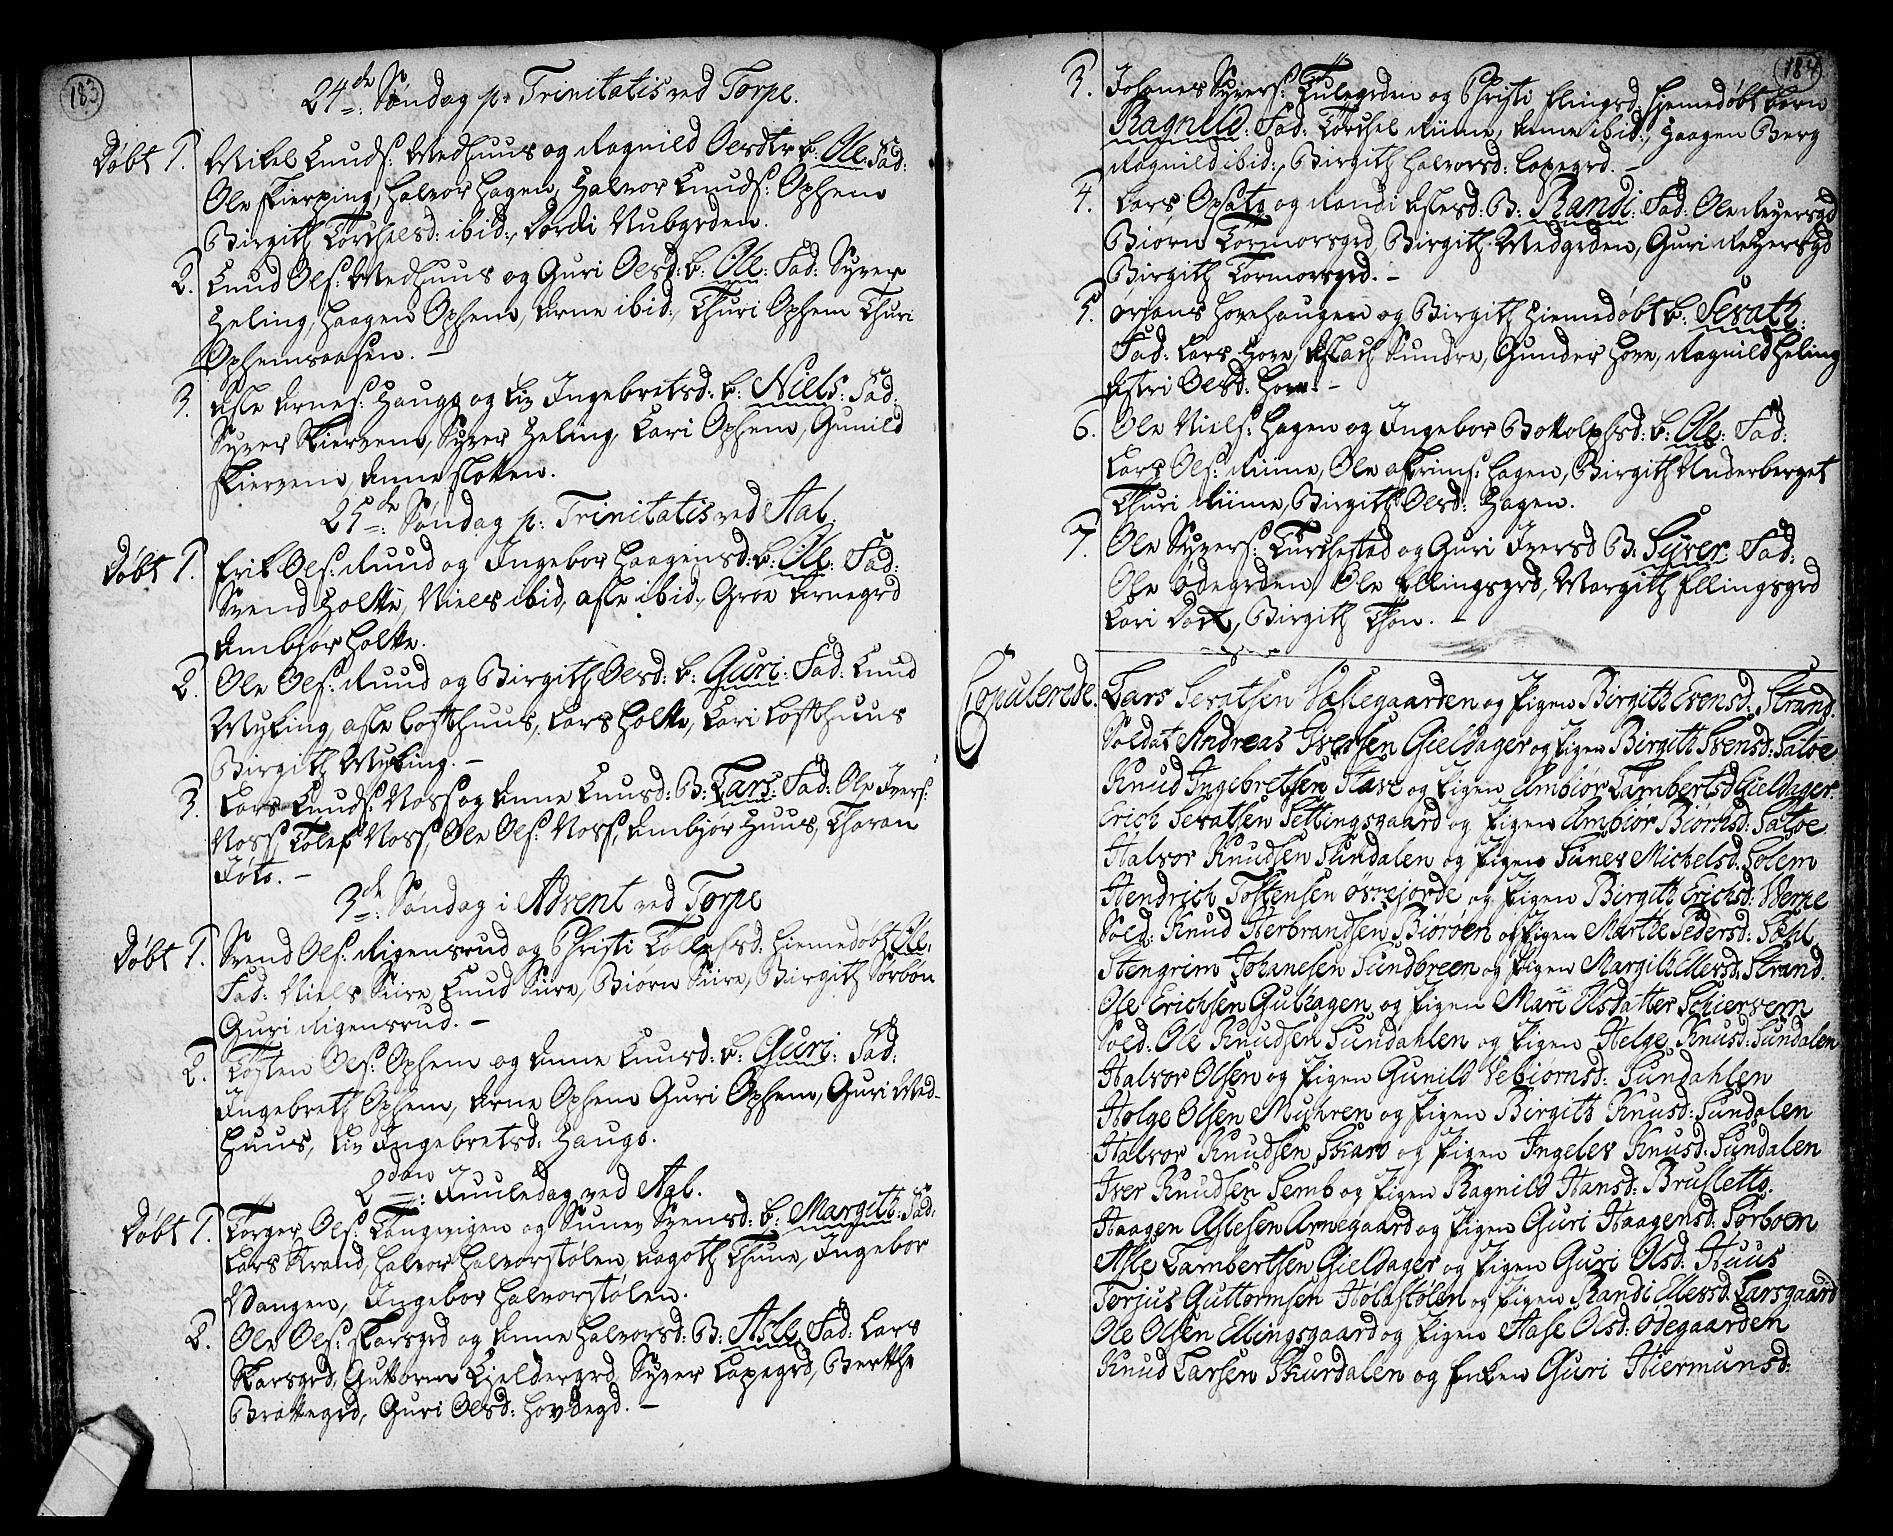 183.
24de Søndag p. Trinitatis ved Torpe.
Døbt 1. Mikel Knuds: Medhuus og Ragnild Olesdtr b: Ole. Fad:
Ole Skierping, Halvor Hagen, Halvor Knuds: Ophem
Birgith Torchelsd: ibid:, Dordi Nubgrden.
2. Knud Ols: Medhuus og Guri Olsd: b: Ole: Fad: Syver
Heling, Haagen Ophem, Arne ibid:, Thuri Ophem Thuri
Ophemsaasen. –
3. Asle Arnes: Haugg og Liv Ingebretsd: b: Niels: Fad:
Syver Skiervem, Syver Heling, Kari Ophem, Gunild
Skiervem Anne Slotten.
25de: Søndag p: Trinitatis ved Aal
Døbt 1. Erik Ols: Ruud og Ingebor Haagensd: b: Ole: Fad:
Svend Holtte, Niels ibid, Asle ibid:, Groe Arnegrd
Ambjor Holtte.
2. Ole Ols: Ruud og Birgith Olsd: b: Guri: Fad: Knud
Myking, Asle Loftthuus, Lars Holtte, Kari Loftthuus
Birgith Myking. –
3. Lars Knuds: Noss og Anne Knusd: B: Lars: Fad: Ole Ivers:
Noss, Tolef Noss, Ole Ols: Noss, Ambjør Huus, Tharan
Føto. –
3de: Søndag i Advent ved Torpe
Døbt 1. Svend Ols: Rigensrud og Christi Tollefsd: Hiemedøbt Ole:
Fad: Niels Siire, Knud Siire, Biørn Siire, Birgith Sørbøn
Guri Rigensrud. –
2. Tosten Ols: Ophem og Anne Knusd: b: Guri: Fad:
Ingebreth Ophem, Arne Ophem Guri Ophem, Guri Med-
huus, Liv Ingebretsd: Haugo.
2den: Juuledag ved Aal.
Døbt 1. Torger Ols: Tungvigen og Sunev Svensd: b: Margith: Fad:
Lars Strand, Halvor Halvorstølen, Aagoth Thune, Ingebor
Vangen, Ingebor Halvorstølen.
2. Ole Ols: Skarsgrd og Anne Halvorsd: B: Asle. Fad: Lars
Skarsgrd, Guttorm Kieldergrd, Syver Lapegrd, Berthe
Brattegrd, Guri Olsd: Hovdegd. –
184
3. Johanes Syvers: Tulegrden og Christi Elingsd: Hiemedøbt barn
Ragnild: Fad: Torchel Riime, Anne ibid:, Haagen Berg
Ragnild ibid:, Birgith Halvorsd: Lapegrd. –
4. Lars Opsato og Randi Aslesd: B: Randi: Fad: Ole Reyersgd
Biørn Tormorsgrd, Birgith Medgrden, Guri Reyersgd
Birgith Tormorsgrd. –
5. Ørjans Hovehaugen og Birgith Hiemedøbt b: Sevath:
Fad: Lars Hove, Aslach Sundre, Gunder Hove, Ragnild Heling
Astri Olsd: Hove. –
6. Ole Niels: Hagen og Ingebor Bottolphsd: b: Ole: Fad:
Lars Ols: Riime, Ole Askrims: Hagen, Birgith Underberget
Thuri Riime, Birgith Olsd: Hagen.
7. Ole Syvers: Turchestad og Guri Iversd B: Siver: Fad:
Ole Ødegrden, Ole Ellingsgrd, Margith Ellingsgrd
Kari Docke, Birgith Thon. –
Copulerede. Lars Sevatsen Vaslegaarden og Pigen Birgith Evensd: Strand.
Soldat Andreas Iversen Gieldager og Pigen Birgith Svensd: Satoe
Knud Ingebretsen Stave og Pigen Ambiør Lambertsd Gieldager.
Erich Sevatsen Settingsgaard og Pigen Ambiør Biørnsd: Satoe
Halvor Knudsen Sundalen og Pigen Sunev Michelsd. Solem
Hendrich Tostensen Øvrejorde og Pigen Birgith Erichsd: Werpe
Sold: Knud Herbrandsen Biørøen og Pigen Marthe Pedersd: Sahl.
Stengrim Johanesen Sundbreen og Pigen Margith Ellevsd: Strand.
Ole Erichsen Gulhagen og Pigen Mari Olsdatter Schiervem
Sold. Ole Knudsen Sundahlen og Pigen Helge Knusd: Sundalen
Halvor Olsen og Pigen Gunild Vebiørnsd: Sundahlen
Holge Olsen Myhren og Pigen Birgith Knusd: Sundalen
Halvor Knudsen Skaro og Pigen Ingelev Knusd: Sundalen
Iver Knudsen Semb og Pigen Ragnild Hansd: Brusletto.
Haagen Aslesen Arnegaard og Pigen Guri Haagensd: Sørboen
Asle Lambertsen Gieldager og Pigen Guri Olsd: Huus
Torjus Guttormsen Holastølen og Pigen Randi Ellevsd. Larsgaard
Ole Olsen Ellingsgaard og Pigen Aase Olsd: Ødegaarden
Knud Larsen Skurdalen og Enken Guri Hiermunsd: